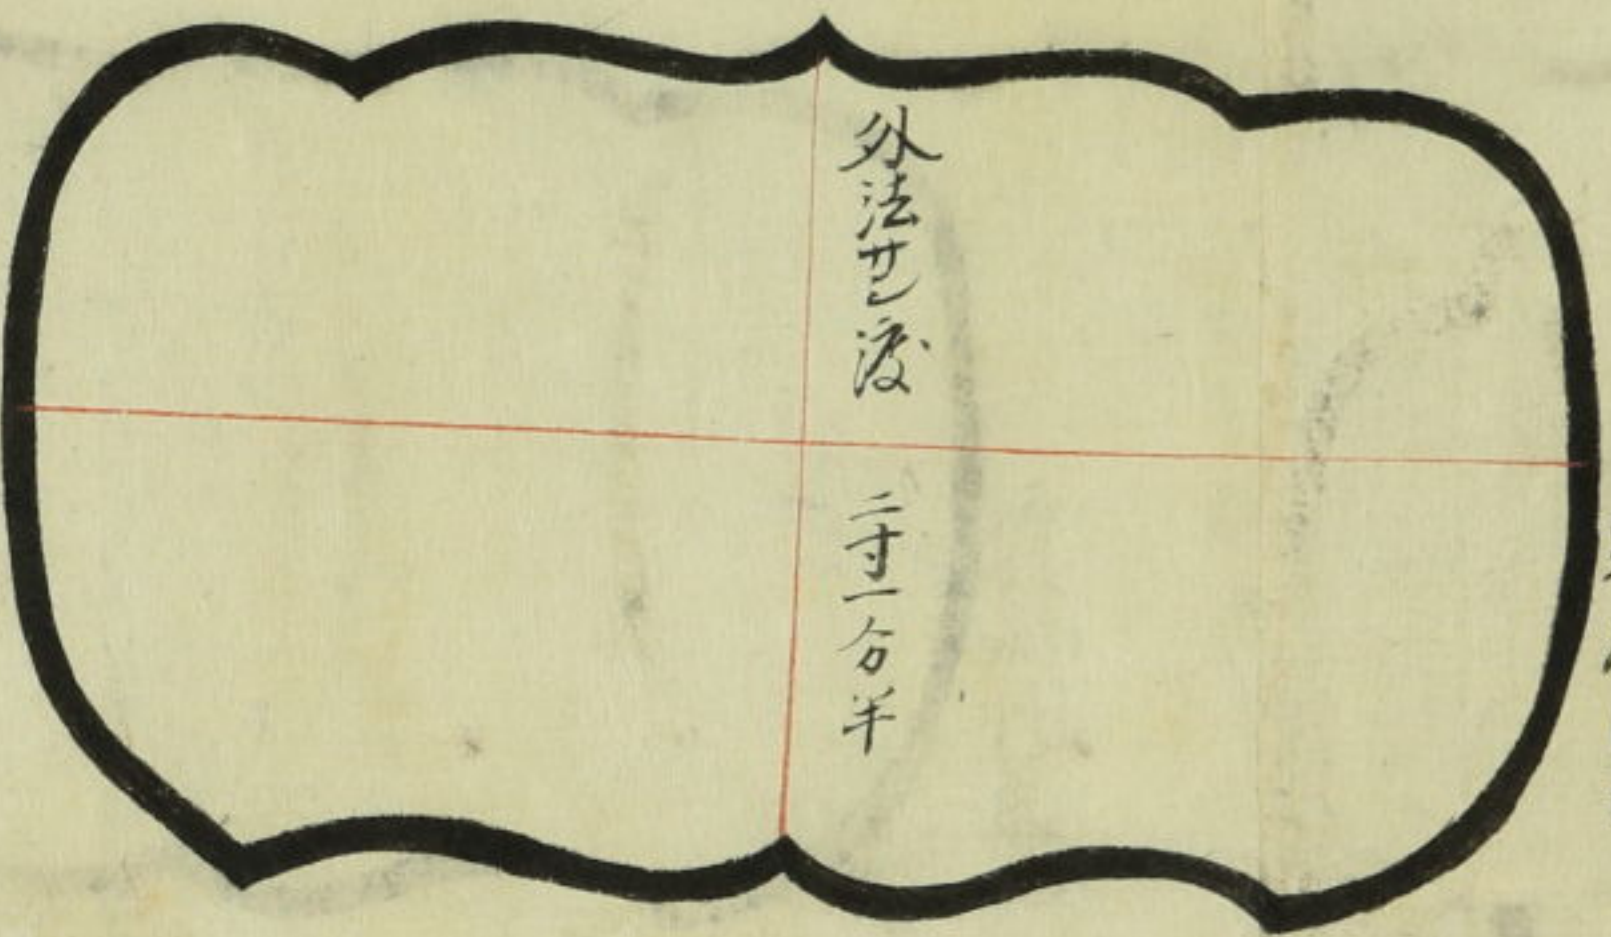 外法サシ渡 二寸一分半